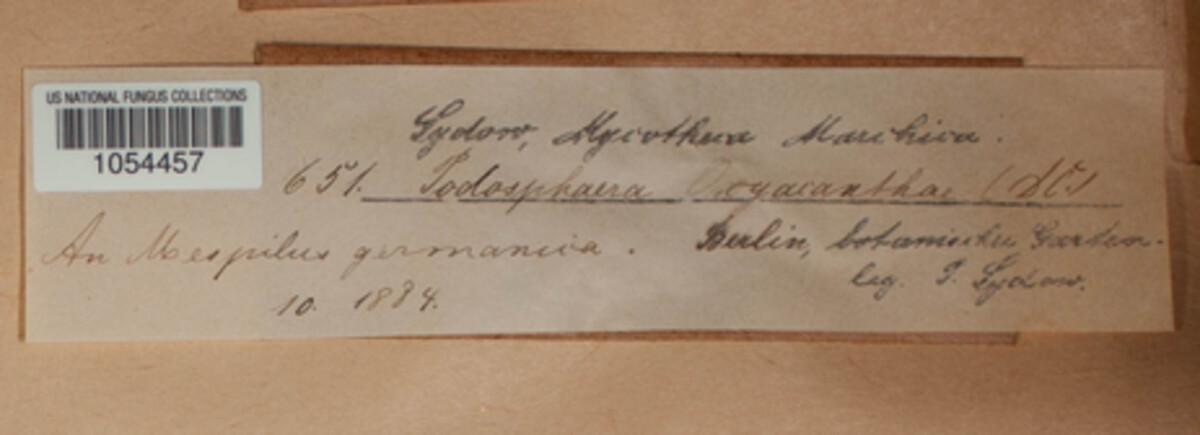 US NATIONAL FUNGUS COLLECTIONS
1054457
Sydow, Mycotheca Marchica.
651. Podosphaera Oxyacanthae (DC)
An Mespilus germanica. Berlin, botanischer Garten.
leg. P. Sydow.
10. 1884.